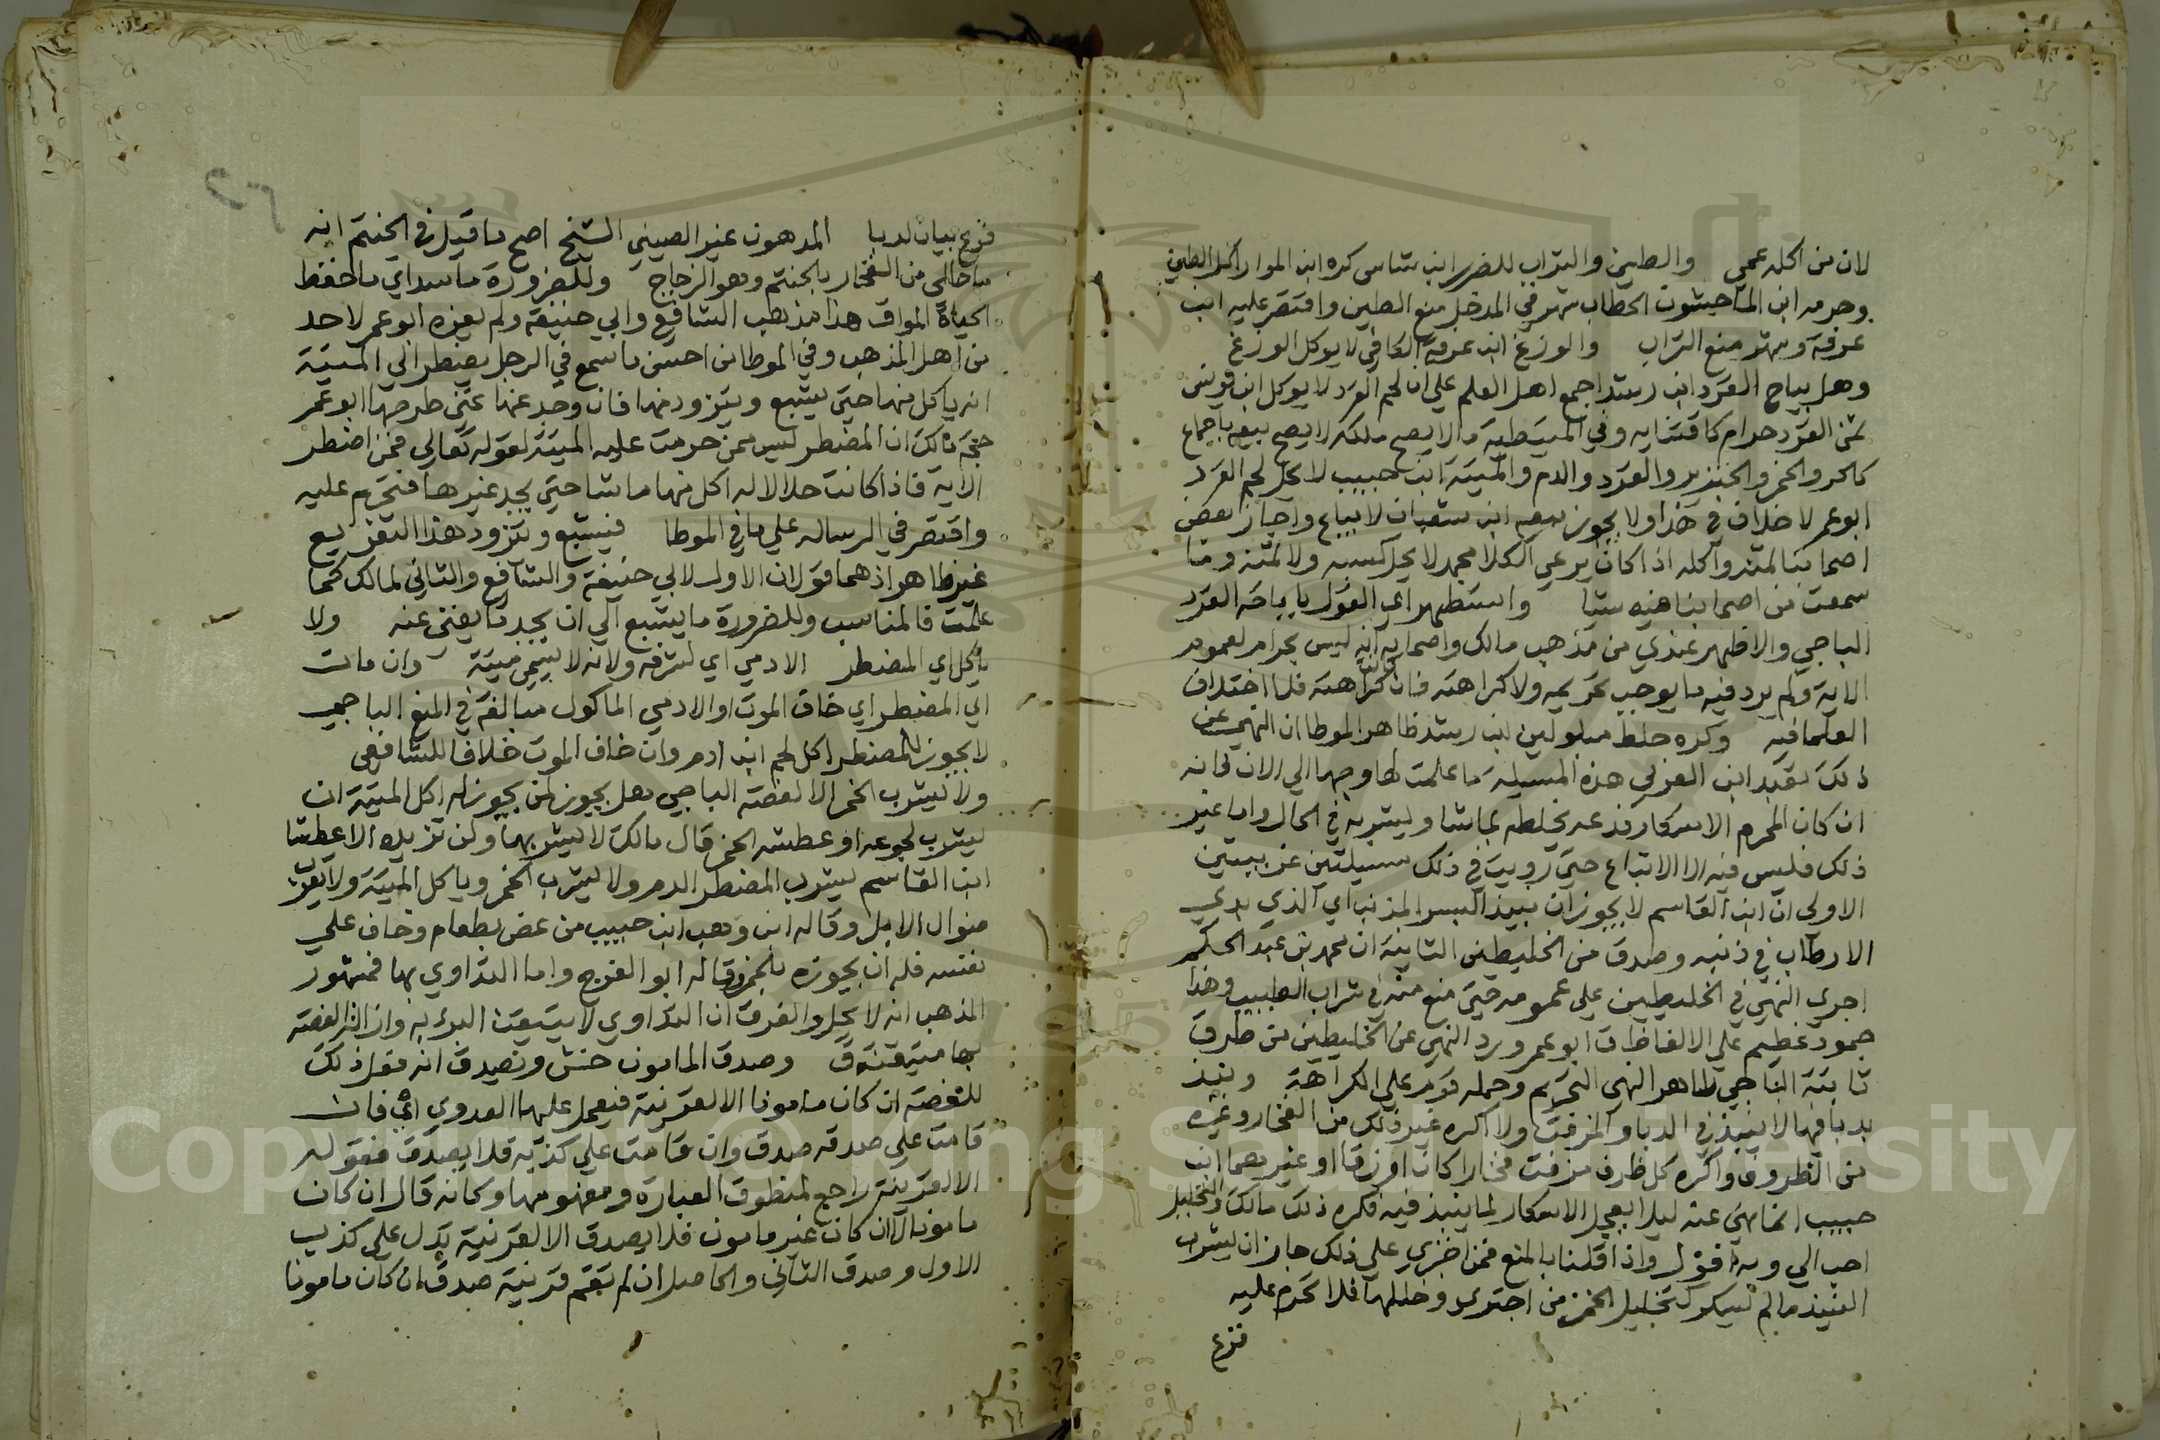 لان من اكله عمي والطين والتراب للضرر ابن شاس كره ابن المواز اكل الطين
وحرمه ابن الماجشون الحطاب شهر في المدخل منع الطين واقتصر عليه ابن
عرفة وشهر منع التراب والوزغ ابن عرفة الكافي لا يوكل الوزغ
وهل يباح القرد ابن رشد اجمع اهل العلم علي ان لحم القرد لا يوكل ابن يونس
ثمن القرد حرام كاقتنايه وفي المتيطية ما لا يصح ملكه لا يصح بيعه باجماع
كالحر والخمر والخنزير والقرد والدم والميتة ابن حبيب لا يحل لحم القرد
ابو عمر لا خلاف في هذا ولا يجوز بيعه ابن شعبان لا يباع واجاز بعض
اصحابنا ثمنه واكله اذا كان يرعي الكلا محمد لا يحل كسبه ولا ثمنه وما
سمعت من اصحابنا فيه شيا واستظهر اي القول باباحة القرد
الباجي والاظهر عندي من مذهب مالك واصحابه انه ليس بحرام لعموم
الاية ولم يرد فيه ما يوجب تحريمه ولا كراهته فان كانت كراهته فلما اختلاف
العلما فيه وكره خلط مبلولين ابن رشد ظاهر الموطا ان النهي عن
ذلك تعبد ابن العربي هذه المسيلة ما علمت لها وجها الي الان فانه
ان كان المحرم الاسكار فدعه يخلطه بما شا ويشربه في الحال واما غير
ذلك فليس فيه الا الاتباع حتي رويت في ذلك مسيلتين غريبتين
الاولي ان ابن القاسم لا يجوز ان ينبذ البسر المذنب اي الذي بدي
الارطاب في ذنبه وصدق من الخليطين الثانية ان محمد بن عبد الحكم
اجري النهي في الخليطين علي عمومه حتي منع منه في شراب الطبيب وهذا
جمود عظيم علي الالفاظ ق ابو عمر ورد النهي عن الخليطين من طرق
ثابتة الباجي ظاهر النهي التحريم وحمله قوم علي الكراهة ونبذ
بدبا فيها لا ينبذ في الدبا والمزفت ولا اكره غير ذلك من الفخار وغيره
من الظروف واكره كل ظرف مزفت فخارا كان او زقا او غيرهما ابن
حبيب انما نهي عنه ليلا يعجل الاسكار لما ينبذ فيه فكره ذلك مالك والتحليل
احب الي وبه اقول واذا قلنا بالمنع فمن اجتري علي ذلك جاز ان يشرب
النبيذ ما لم يسكر كتخليل الخمر من اجتري وخللها فلا تحرم عليه
فرع
فرع بيان لدبا المدهون غير الصيني الشيخ اصح ما قيل في الحنتم انه
ما طلي من الفخار بالحنتم وهو الزجاج وللضرورة ما يسد اي ما حفظ
الحياة المواق هذا مذهب الشافعي وابي حنيفة ولم يعزه ابو عمر لاحد
من اهل المذهب وفي الموطا من احسن ما سمع في الرجل يضطر الي الميتة
انه ياكل منها حتي يشبع ويتزود منها فان وجد عنها غني طرحها ابو عمر
حجة مالك ان المضطر ليس ممن حرمت عليه الميتة لقوله تعالي فمن اضطر
الاية فاذا كانت حلالا له اكل منها ما شا حتي يجد غيرها فتحرم عليه
واقتصر في الرسالة علي ما في الموطا فيشبع ويتزود هذا التفريع
غير ظاهر اذ هما قولان الاول لابي حنيفة والشافعي والثاني لمالك كما
علمت فالمناسب وللضرورة ما يشبع الي ان يجد ما يغني عنه ولا
ياكل اي المضطر الادمي اي لشرفه ولانه لا يسمي ميتة وان مات
اي المضطر اي خاف الموت او الادمي الماكول مبالغة في المنع الباجي
لا يجوز للمضطر اكل لحم ابن ادم وان خاف الموت خلافا للشافعي
ولا يشرب الخمر الا لغصة الباجي هل يجوز لمن يجوز له اكل الميتة ان
يشرب لجوعه او عطشه الخمر قال مالك لا يشربها ولن تزيده الا عطشا
ابن القاسم يشرب المضطر الدم ولا يشرب الخمر وياكل الميتة ولا يقرب
ضوال الابل وقاله ابن وهب ابن حبيب من غص بطعام وخاف علي
نفسه فله ان يجوزه بالخمر وقاله ابو الفرج واما التداوي بها فمشهور
المذهب انه لا يحل والفرق ان التداوي لا يتيقن البرء به وازالة الغصة
بها متيقنة ق وصدق المامون خش وتصيدق انه فعل ذلك
للغصة ان كان مامونا الا لقرينة فيعمل عليها العدوي اي فان
قامت علي صدقه صدق وان قامت علي كذبه فلا يصدق فقوله
الا لقرينة راجع لمنطوق العبارة ومفهومها وكانه قال ان كان
مامونا لا ان كان غير مامون فلا يصدق الا لقرينة تدل علي كذب
الاول وصدق الثاني والحاصل ان لم تقم قرينة صدق ان كان مامونا
Copyright © King Saud University